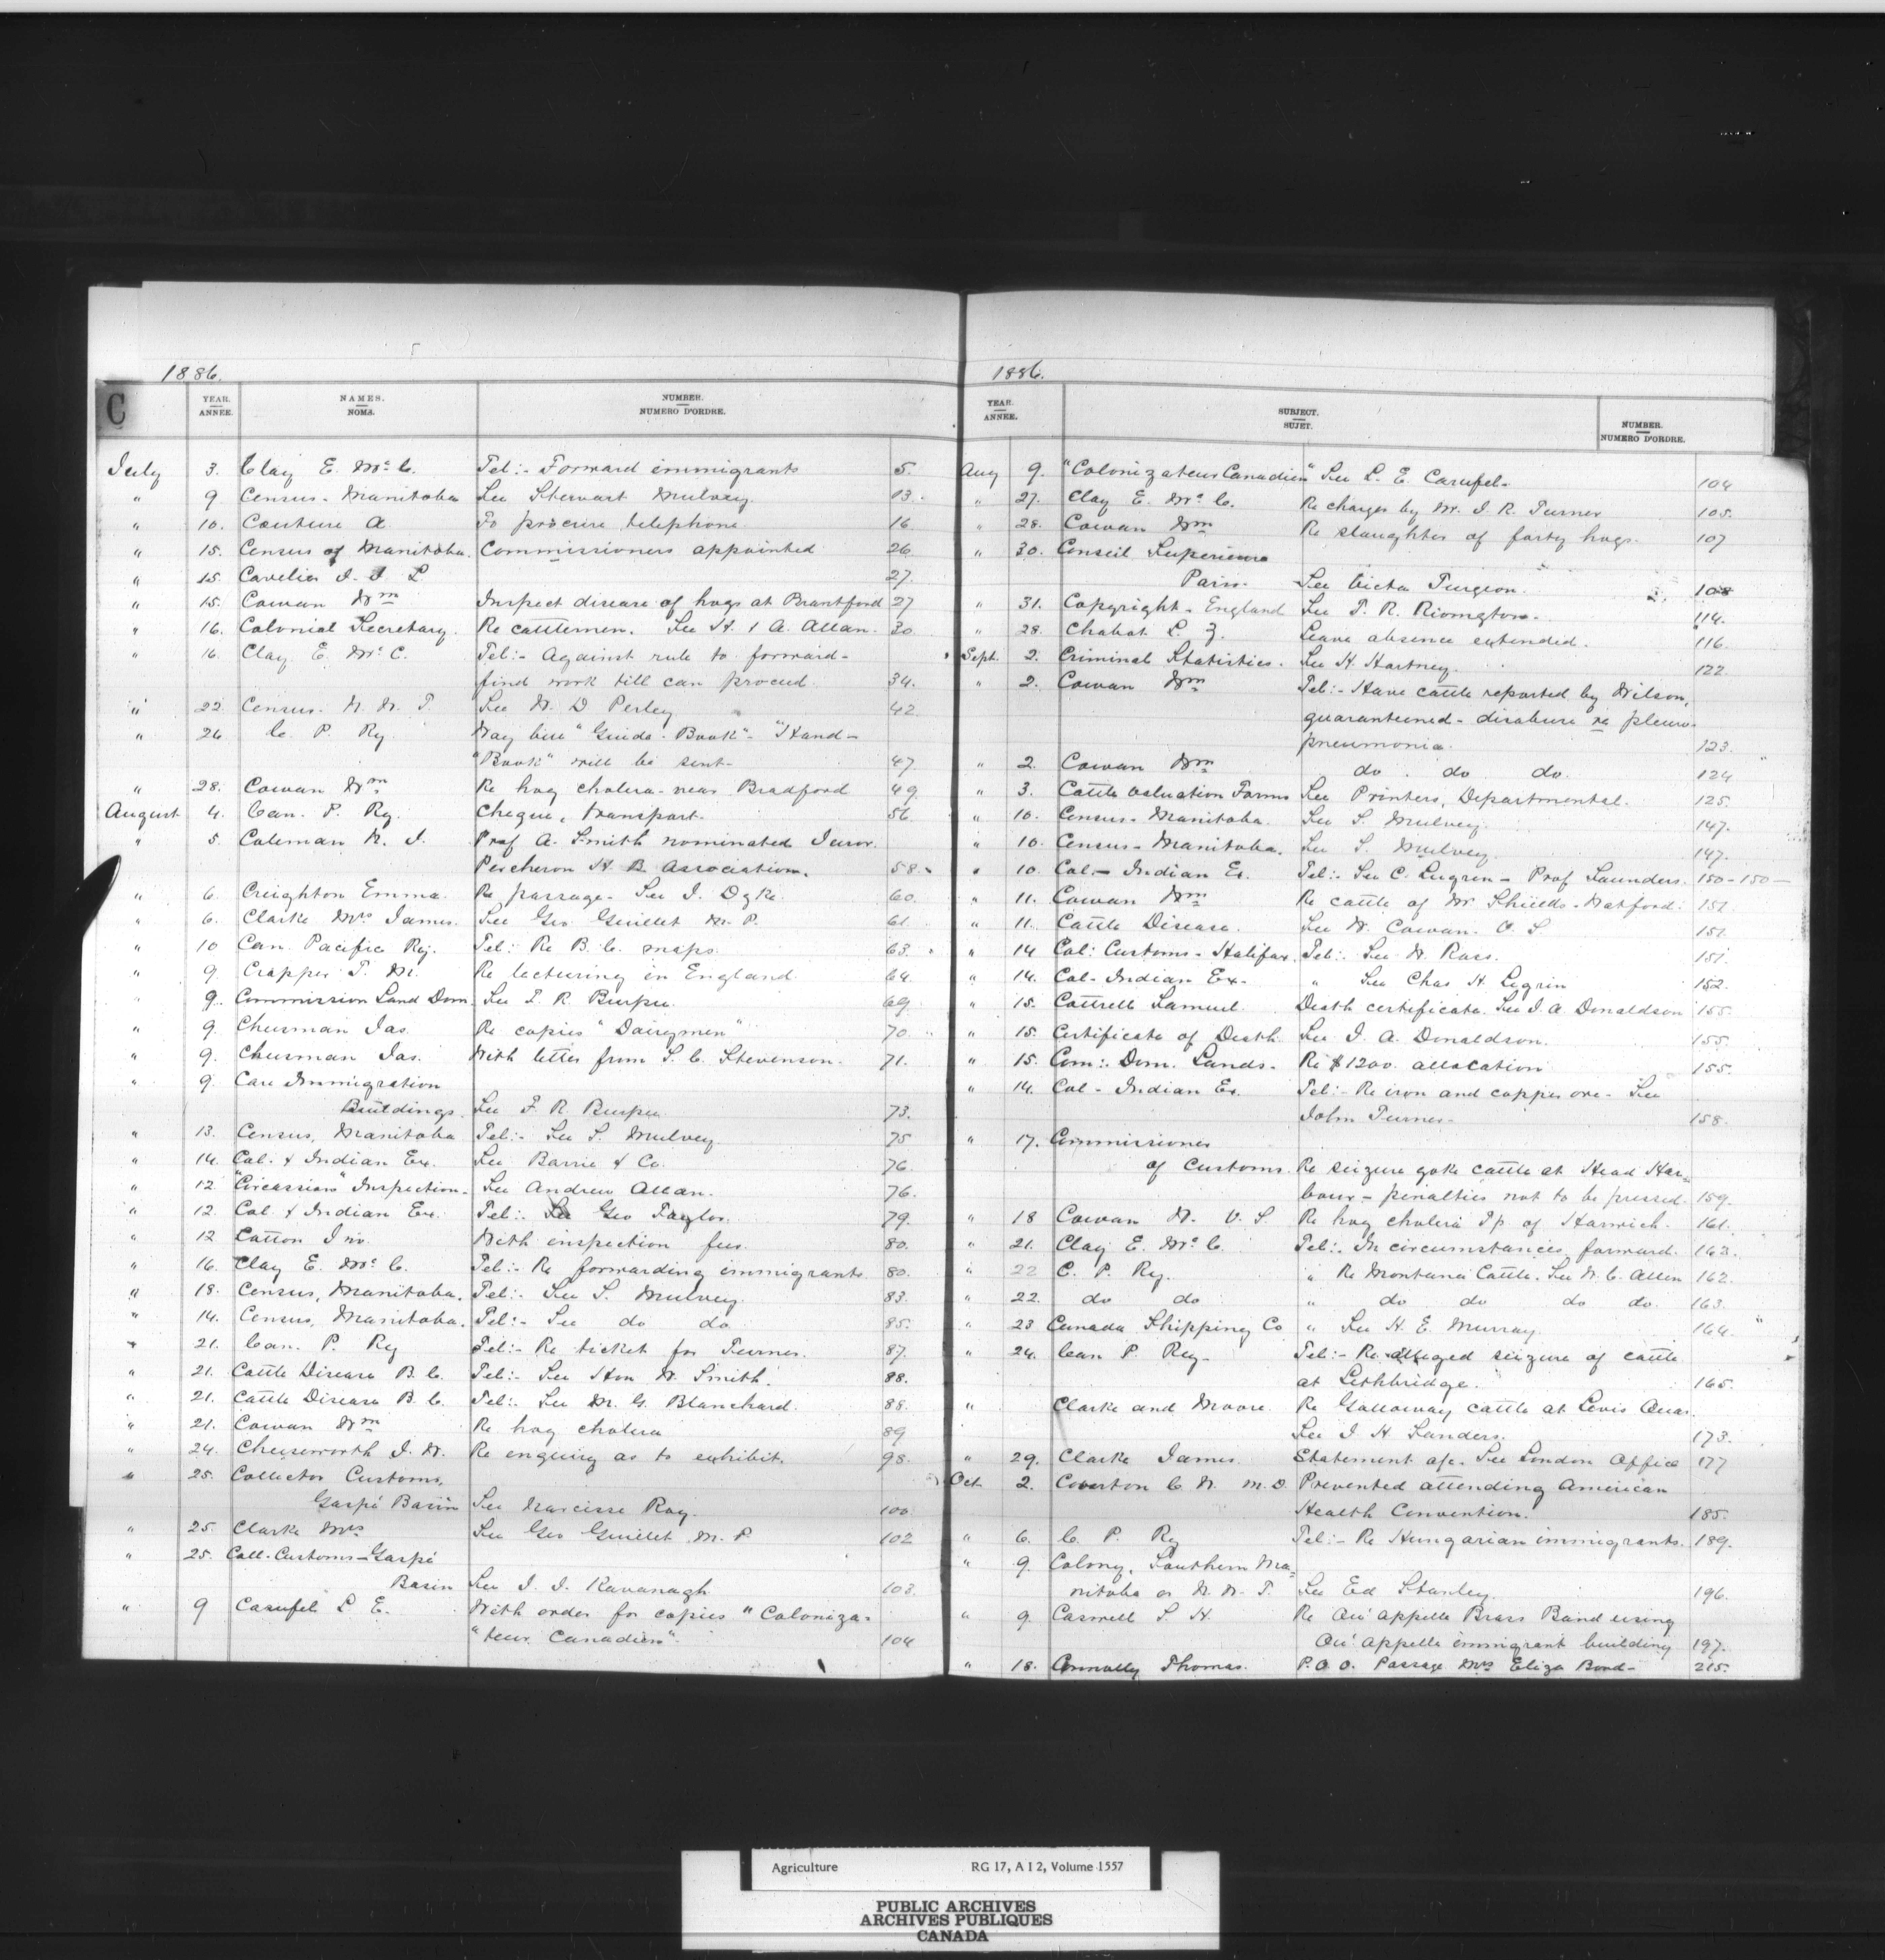 1886.
C
YEAR. ANNEE.
NAMES. NOMS.
NUMBER. NUMERO D'ORDRE.
July 3. Clay E. McC. Tel:- Forward immigrants 5.
" 9 Census - Manitoba See Stewart Mulvey. 13.
" 10. Couture A. To procure telephone. 16
" 15. Census of Manitoba. Commissioners appointed 26.
" 15. Cavelier J. J. L 27.
" 15. Cowan Wm Inspect disease of hogs at Brantford 27
" 16. Colonial Secretary. Re cattlemen. See H. & A. Allan. 30
" 16. Clay E. McC. Tel:- Against rule to forward-
find work till can proceed. 34.
" 22. Census. N. W. T. See W. D Perley 42.
" 26 C. P. Ry. May line "Guide-Book"- "Hand-
"Book" will be sent- 47.
" 28. Cowan Wm Re hog cholera near Bradford 49.
August 4. Can. P. Ry. Cheque, transport. 56.
" 5. Coleman N. J. Prof A. Smith nominated Juror.
Percheron H. B. Association. 58.
" 6. Creighton Emma. Re passage. See J. Dyke. 60.
" 6. Clarke Mrs James. See Geo Guillet M. P. 61.
" 10 Can. Pacific Ry. Tel: Re B. C. maps. 63.
" 9. Crapper T. W. Re lecturing in England 64.
" 9. Commission Land Dom. See F. R. Burpee. 69.
" 9. Cheesman Jas. Re copies "Dairymen" 70
" 9. Cheesman Jas. With letter from S. C. Stevenson. 71.
" 9. Care Immigration
Buildings. See F. R. Burpee 73.
" 13. Census, Manitoba Tel:- See S. Mulvey. 75
" 14. Col. & Indian Ex. See Barrie & Co. 76.
" 12 "Circassian" Inspection. See Andrew Allan. 76.
" 12. Col. & Indian Ex. Tel:- See Geo Taylor. 79.
" 12 Cotton Jno. With inspection fees. 80.
" 16. Clay E. McC. Tel:- Re forwarding immigrants. 80.
" 18. Census, Manitoba. Tel:- See S. Mulvey. 83.
" 14. Census, Manitoba. Tel:- See do do 85.
" 21. Can. P. Ry Tel:- Re ticket for Turner. 87.
" 21. Cattle Disease B. C. Tel:- See Hon W. Smith. 88.
" 21. Cattle Disease B. C. Tel:. See M. G. Blanchard. 88.
" 21. Cowan Wm Re hog cholera 89
" 24. Cheeseworth J. W. Re enquiry as to exhibit. 98.
" 25. Collector Customs,
Gaspé Basin See Narcisse Roy. 100.
" 25. Clarke Mrs See Geo Guillet M. P. 102
" 25. Coll. Customs-Gaspé
Basin See J. J. Kavanagh. 103.
" 9 Carufel L E. With order for copies "Coloniza-
"teur Canadien". 104
1886.
YEAR. ANNEE.
SUBJECT. SUJET.
NUMBER. NUMERO D'ORDRE.
Aug 9. "Colonizateur Canadien" See L. E. Carufel. 104
" 27. Clay E. McC. Re charges by Mr. J. R. Turner 105.
" 28. Cowan Wm Re slaughter of forty hogs. 107
" 30. Conseil Superieure
Paris. See Victor Turgeon. 108
" 31. Copyright - England See T. R. Rivington. 114.
" 28. Chabot L. Z. Leave absence extended. 116.
Sept. 2. Criminal Statistics. See H. Hartney. 122.
" 2. Cowan Wm Tel:- Have cattle reported by Wilson,
quarantined - disabuse re pleuro-
pneumonia. 123.
" 2. Cowan Wm do. do. do. 124
" 3. Cattle Valuation Forms See Printers, Departmental. 125.
" 10. Census - Manitoba. See S. Mulvey. 147.
" 10. Census - Manitoba. See S. Mulvey. 147.
" 10. Col.- Indian Ex. Tel:- See C. Lugrin - Prof Saunders. 150-150-
" 11. Cowan Wm Re cattle of Mr. Shields - Watford. 151.
" 11. Cattle Disease. See W. Cowan. V. S 151.
" 14 Col: Customs - Halifax. Tel:- See W. Ross. 151.
" 14. Col- Indian Ex- " See Chas H. Lugrin 152.
" 15. Cottrell Samuel. Death certificate. See J. A. Donaldson 155.
" 15. Certificate of Death See J. A. Donaldson. 155.
" 15. Com:. Dom. Lands. Re $1200. allocation 155.
" 14. Col - Indian Ex. Tel:- Re iron and copper ore. See
John Turner. 158.
" 17. Commissioner
of Customs. Re seizure yoke cattle at Head Har-
bour - penalties not to be pressed. 159.
" 18 Cowan W. V. S. Re hog cholera Tp of Harwich. 161.
" 21. Clay E. McC. Tel:. In circumstances forward. 163.
" 22 C. P. Ry. " Re Montana Cattle. See W. C. Allen 162.
" 22. do do " do do do do. 163.
" 23 Canada Shipping Co " See H. E. Murray. 164.
" 24. Can P. Ry- Tel:- Re alleged seizure of cattle
at Lethbridge. 165.
" Clarke and Moore. Re Galloway cattle at Levis Quar.
See J H Sanders. 173.
" 29. Clarke James. Statement a/c. See London Office 177
Oct 2. Coverton C. W. M.D. Prevented attending American
Health Convention. 185.
" 6. C. P. Ry Tel:- Re Hungarian immigrants. 189.
" 9. Colony, Southern Ma-
nitoba or N. W. T. See Ed Stanley. 196.
" 9. Caswell S. H. Re Qu'appelle Brass Band using
Qu'appelle immigrant building 197.
" 18. Connolly Thomas. P.O.O. Passage Mrs Eliza Bond- 215.
Agriculture RG 17, A I 2, Volume 1557
PUBLIC ARCHIVES
ARCHIVES PUBLIQUES
CANADA